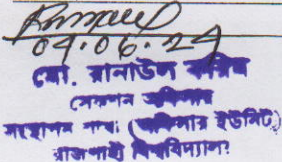 04.06.24
মো. রানাউল করিম
সেকশন অফিসার
সংস্থাপন শাখা (অফিসার ইউনিট)
রাজশাহী বিশ্ববিদ্যালয়